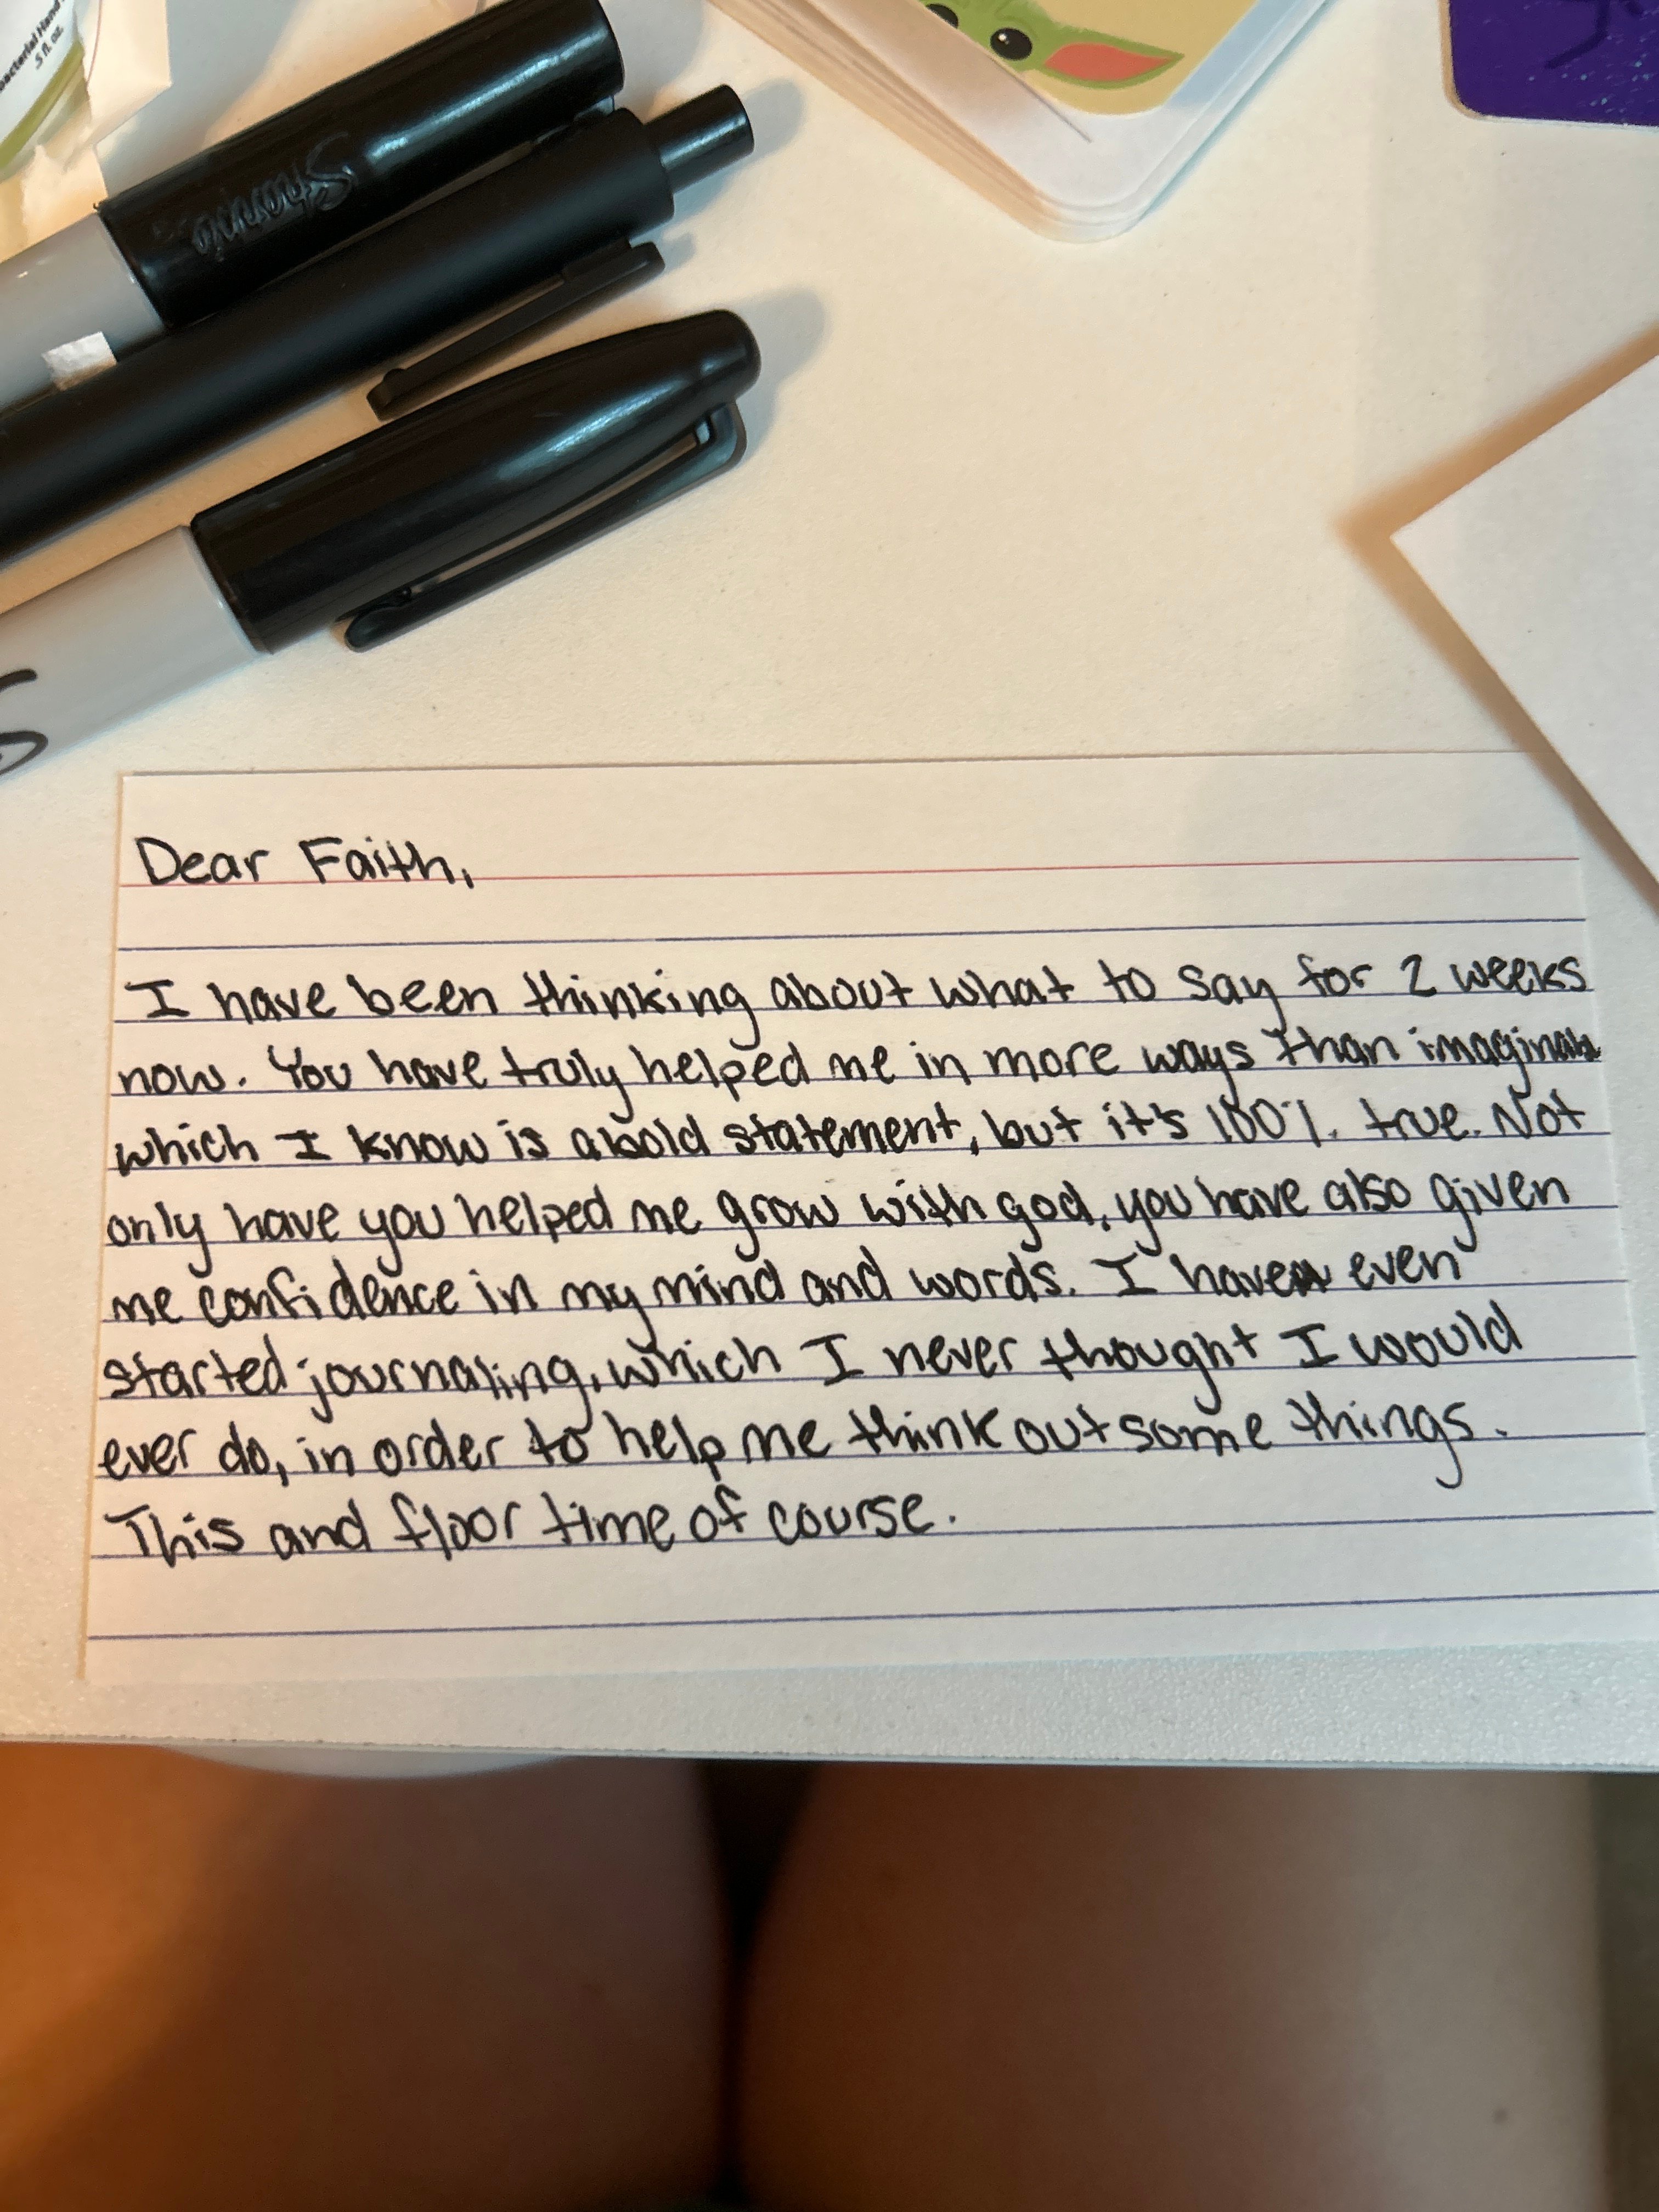 bacterial Hand
.5 fl. oz.
Sharpie
Dear Faith,
I have been thinking about what to say for 2 weeks
now. You have truly helped me in more ways than
which I know is a bold statement, but it's 100%. true. Not
only have you helped me grow with god, you have also given
me confidence in my mind and words. I have even
started journaling, which I never thought I would
ever do, in order to help me think out some things.
This and floor time of course.